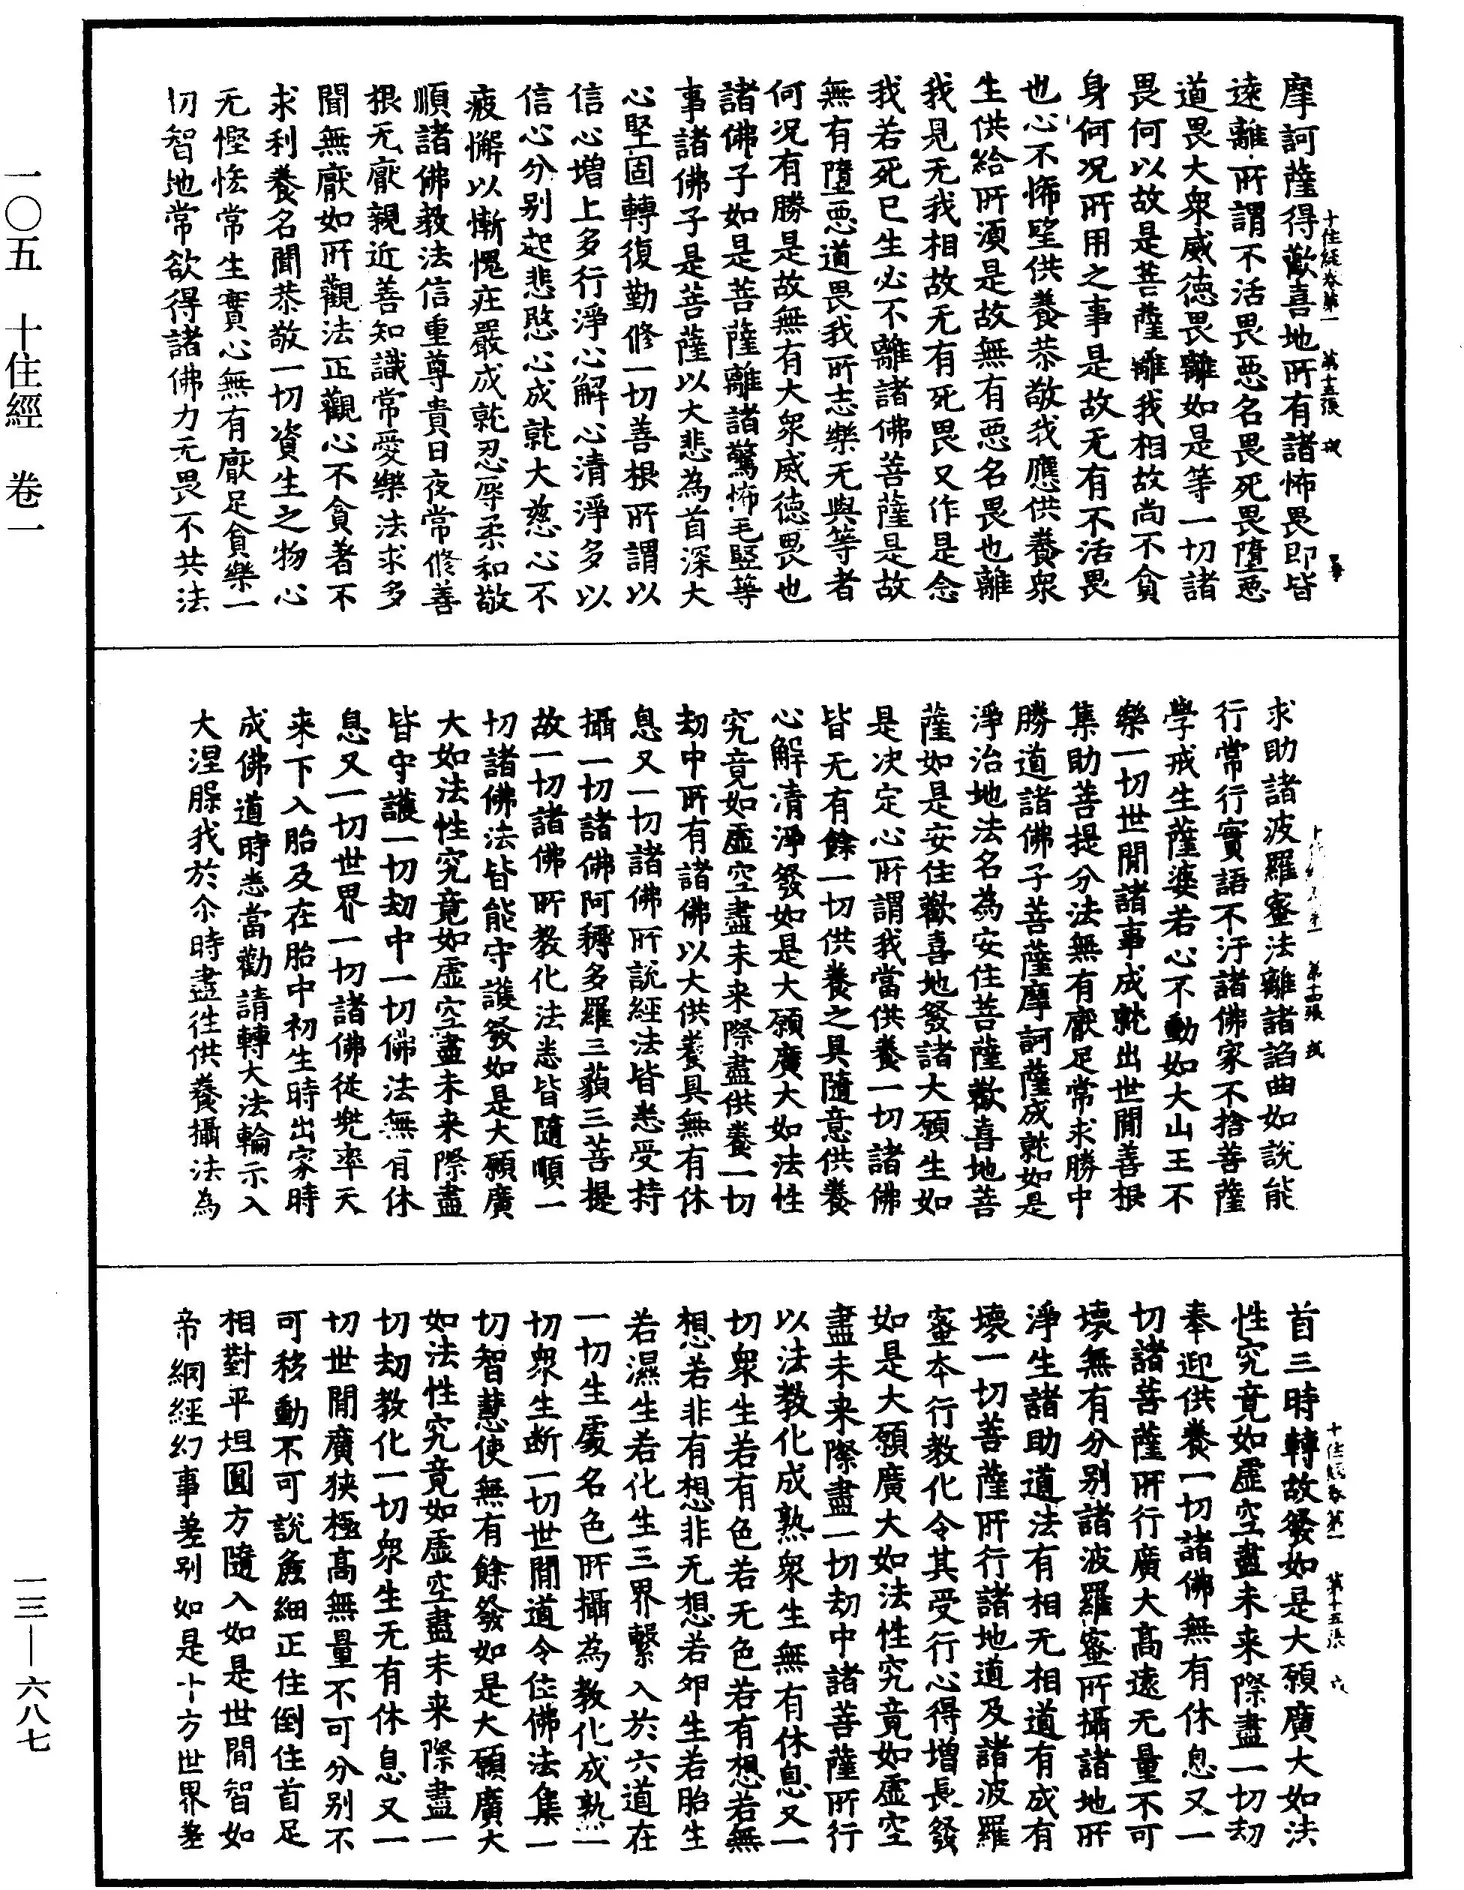 摩訶薩得歡喜地所有諸怖畏即皆
遠離所謂不活畏惡名畏死畏墮惡
道畏大衆威德畏離如是等一切諸
畏何以故是菩薩離我相故尚不貪
身何况所用之事是故无有不活畏
也心不怖望供養恭敬我應供養衆
生供給所湏是故無有惡名畏也離
我見无我相故无有死畏又作是念
我若死已生必不離諸佛菩薩是故
無有墮惡道畏我所志樂无與等者
何况有勝是故無有大衆威德畏也
諸佛子如是菩薩離諸驚怖毛竪等
事諸佛子是菩薩以大悲為首深大
心堅固轉復勤修一切善根所謂以
信心增上多行淨心解心清淨多以
信心分别起悲愍心成就大慈心不
疲懈以慚愧莊嚴成就忍辱柔和敬
順諸佛教法信重尊貴日夜常修善
根无猒親近善知識常愛樂法求多
聞無厭如所觀法正觀心不貪著不
求利養名聞恭敬一切資生之物心
无慳悋常生實心無有厭足貪樂一
切智地常欲得諸佛力无畏不共法
十住經卷第一 第十三張
求助諸波羅蜜法離諸諂曲如說能
行常行實語不汙諸佛家不捨菩薩
學戒生薩婆若心不動如大山王不
樂一切世閒諸事成就出世閒善根
集助菩提分法無有厭足常求勝中
勝道諸佛子菩薩摩訶薩成就如是
淨治地法名為安住菩薩歡喜地菩
薩如是安住歡喜地發諸大願生如
是决定心所謂我當供養一切諸佛
皆无有餘一切供養之具隨意供養
心解清淨發如是大願廣大如法性
究竟如虛空盡未来際盡供養一切
劫中所有諸佛以大供養具無有休
息又一切諸佛所說經法皆悉受持
攝一切諸佛阿耨多羅三藐三菩提
故一切諸佛所教化法悉皆隨順一
切諸佛法皆能守護發如是大願廣
大如法性究竟如虛空盡未来際盡
皆守護一切劫中一切佛法無有休
息又一切世界一切諸佛從兠率天
来下入胎及在胎中初生時出家時
成佛道時悉當勸請轉大法輪示入
大涅槃我於尒時盡往供養攝法為
第十四張
首三時轉故發如是大願廣大如法
性究竟如虛空盡未来際盡一切劫
奉迎供養一切諸佛無有休息又一
切諸菩薩所行廣大高遠无量不可
壞無有分别諸波羅蜜所攝諸地所
淨生諸助道法有相无相道有成有
壞一切菩薩所行諸地道及諸波羅
蜜本行教化令其受行心得增長發
如是大願廣大如法性究竟如虛空
盡未来際盡一切劫中諸菩薩所行
以法教化成熟衆生無有休息又一
切衆生若有色若无色若有想若無
想若非有想非无想若卵生若胎生
若濕生若化生三界繫入於六道在
一切生處名色所攝為教化成熟一
切衆生断一切世閒道令住佛法集一
切智慧使無有餘發如是大願廣大
如法性究竟如虛空盡未来際盡一
切劫教化一切衆生无有休息又一
切世閒廣狹極高無量不可分别不
可移動不可說麁細正住倒住首足
相對平坦圓方隨入如是世閒智如
帝網經幻事差别如是十方世界差
十住經卷第一 第十五張
一〇五 十住經 卷一
一三—六八七